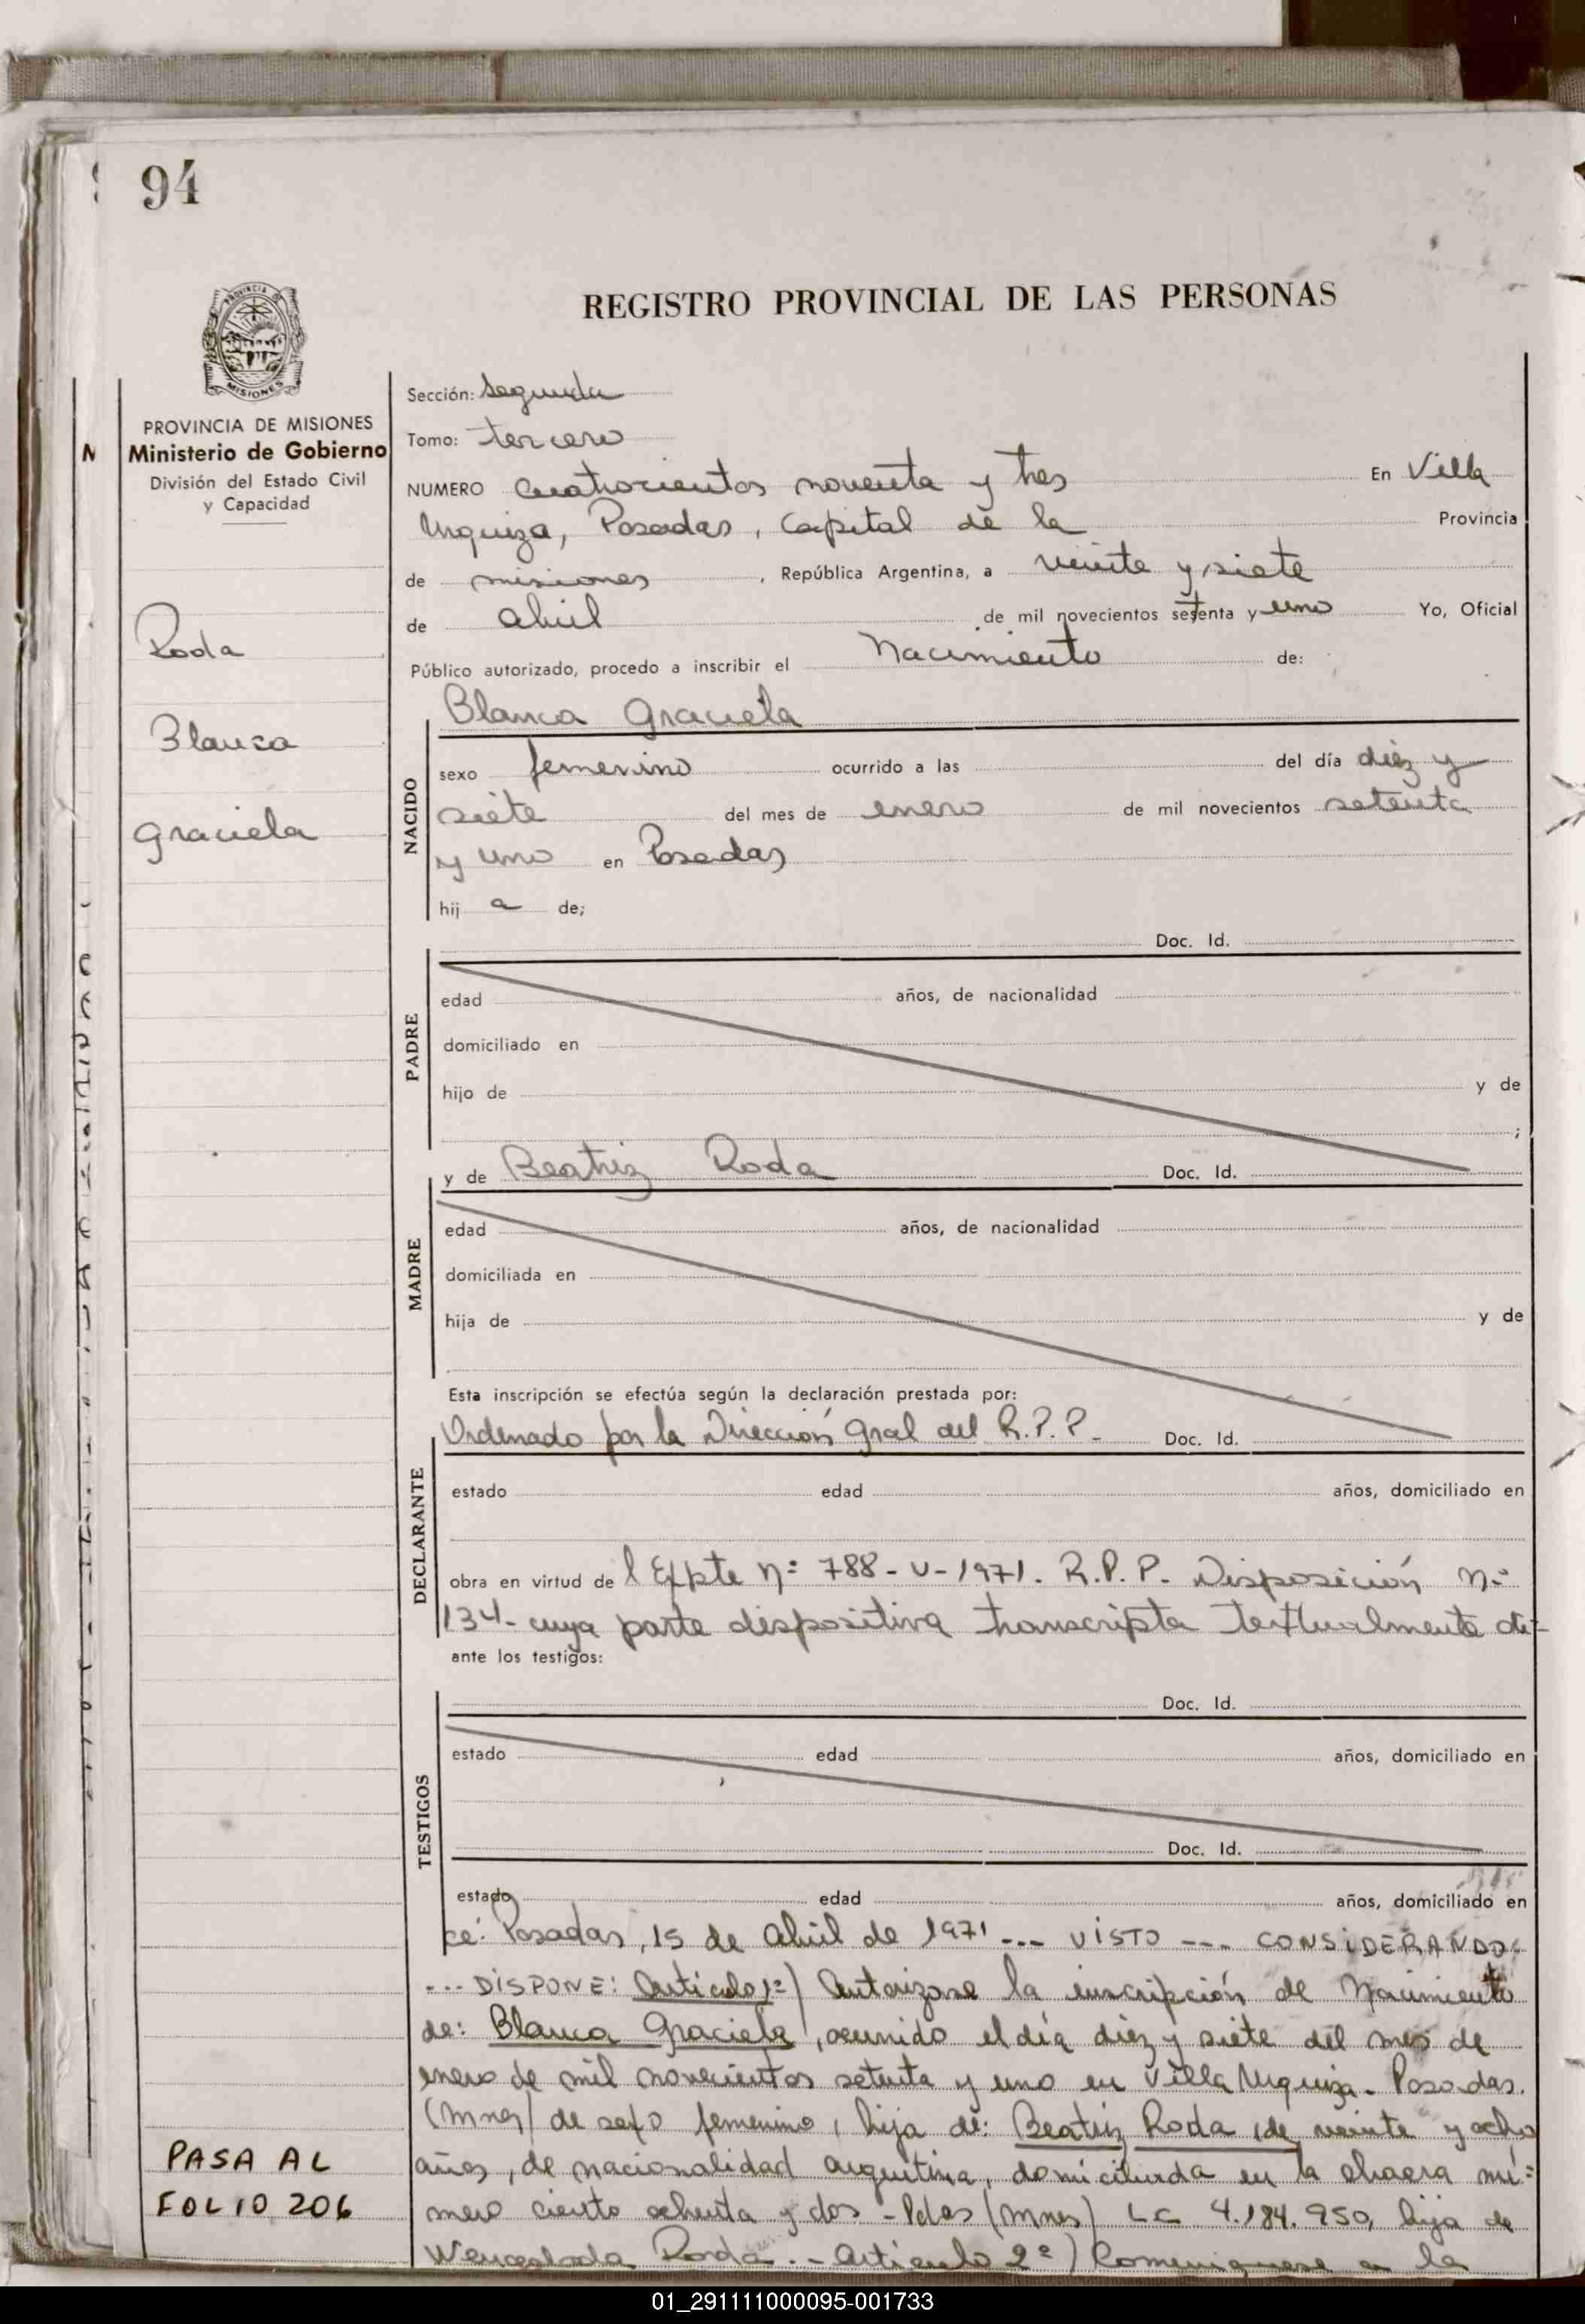 94
REGISTRO PROVINCIAL DE LAS PERSONAS
PROVINCIA DE
MISIONES
PROVINCIA DE MISIONES
Ministerio de Gobierno
División del Estado Civil
y Capacidad
Roda
Blanca
Graciela
Sección: Segunda
Tomo: tercero
NUMERO Cuatrocientos noventa y tres En Villa
Urquiza, Posadas, Capital de la Provincia
de misiones, República Argentina, a veinte y siete
de abril de mil novecientos setenta y uno Yo, Oficial
Público autorizado, procedo a inscribir el Nacimiento de:
Blanca Graciela
NACIDO
sexo femenino ocurrido a las del día diez y
siete del mes de enero de mil novecientos setenta
y uno en Posadas
hij a de;
Doc. Id.
PADRE
edad años, de nacionalidad
domiciliado en
hijo de y de
;
y de Beatriz Roda Doc. Id.
MADRE
edad años, de nacionalidad
domiciliada en
hija de y de
Esta inscripción se efectúa según la declaración prestada por:
Ordenado por la Dirección Gral del R.P.P.- Doc. Id.
DECLARANTE
estado edad años, domiciliado en
obra en virtud de l Expte Nº 788-V-1971. R.P.P. Disposición Nº
134- cuya parte dispositiva transcripta textualmente di-
ante los testigos:
Doc. Id.
TESTIGOS
estado edad años, domiciliado en
Doc. Id.
estado edad años, domiciliado en
ce: Posadas, 15 de Abril de 1971 --- VISTO --- CONSIDERANDO:
--- DISPONE: Artículo 1º) Autorizase la inscripción de Nacimiento
de: Blanca Graciela, ocurrido el día diez y siete del mes de
enero de mil novecientos setenta y uno en Villa Urquiza - Posadas.
(Mnes) de sexo femenino, hija de: Beatriz Roda, de veinte y ocho
años, de nacionalidad argentina, domiciliada en la chacra nú=
mero ciento ochenta y dos - Pdas (Mnes) LC 4.184.950, hija de
Wenceslada Roda.- Artículo 2º) Comuniquese a la
PASA AL
FOLIO 206
01_291111000095-001733